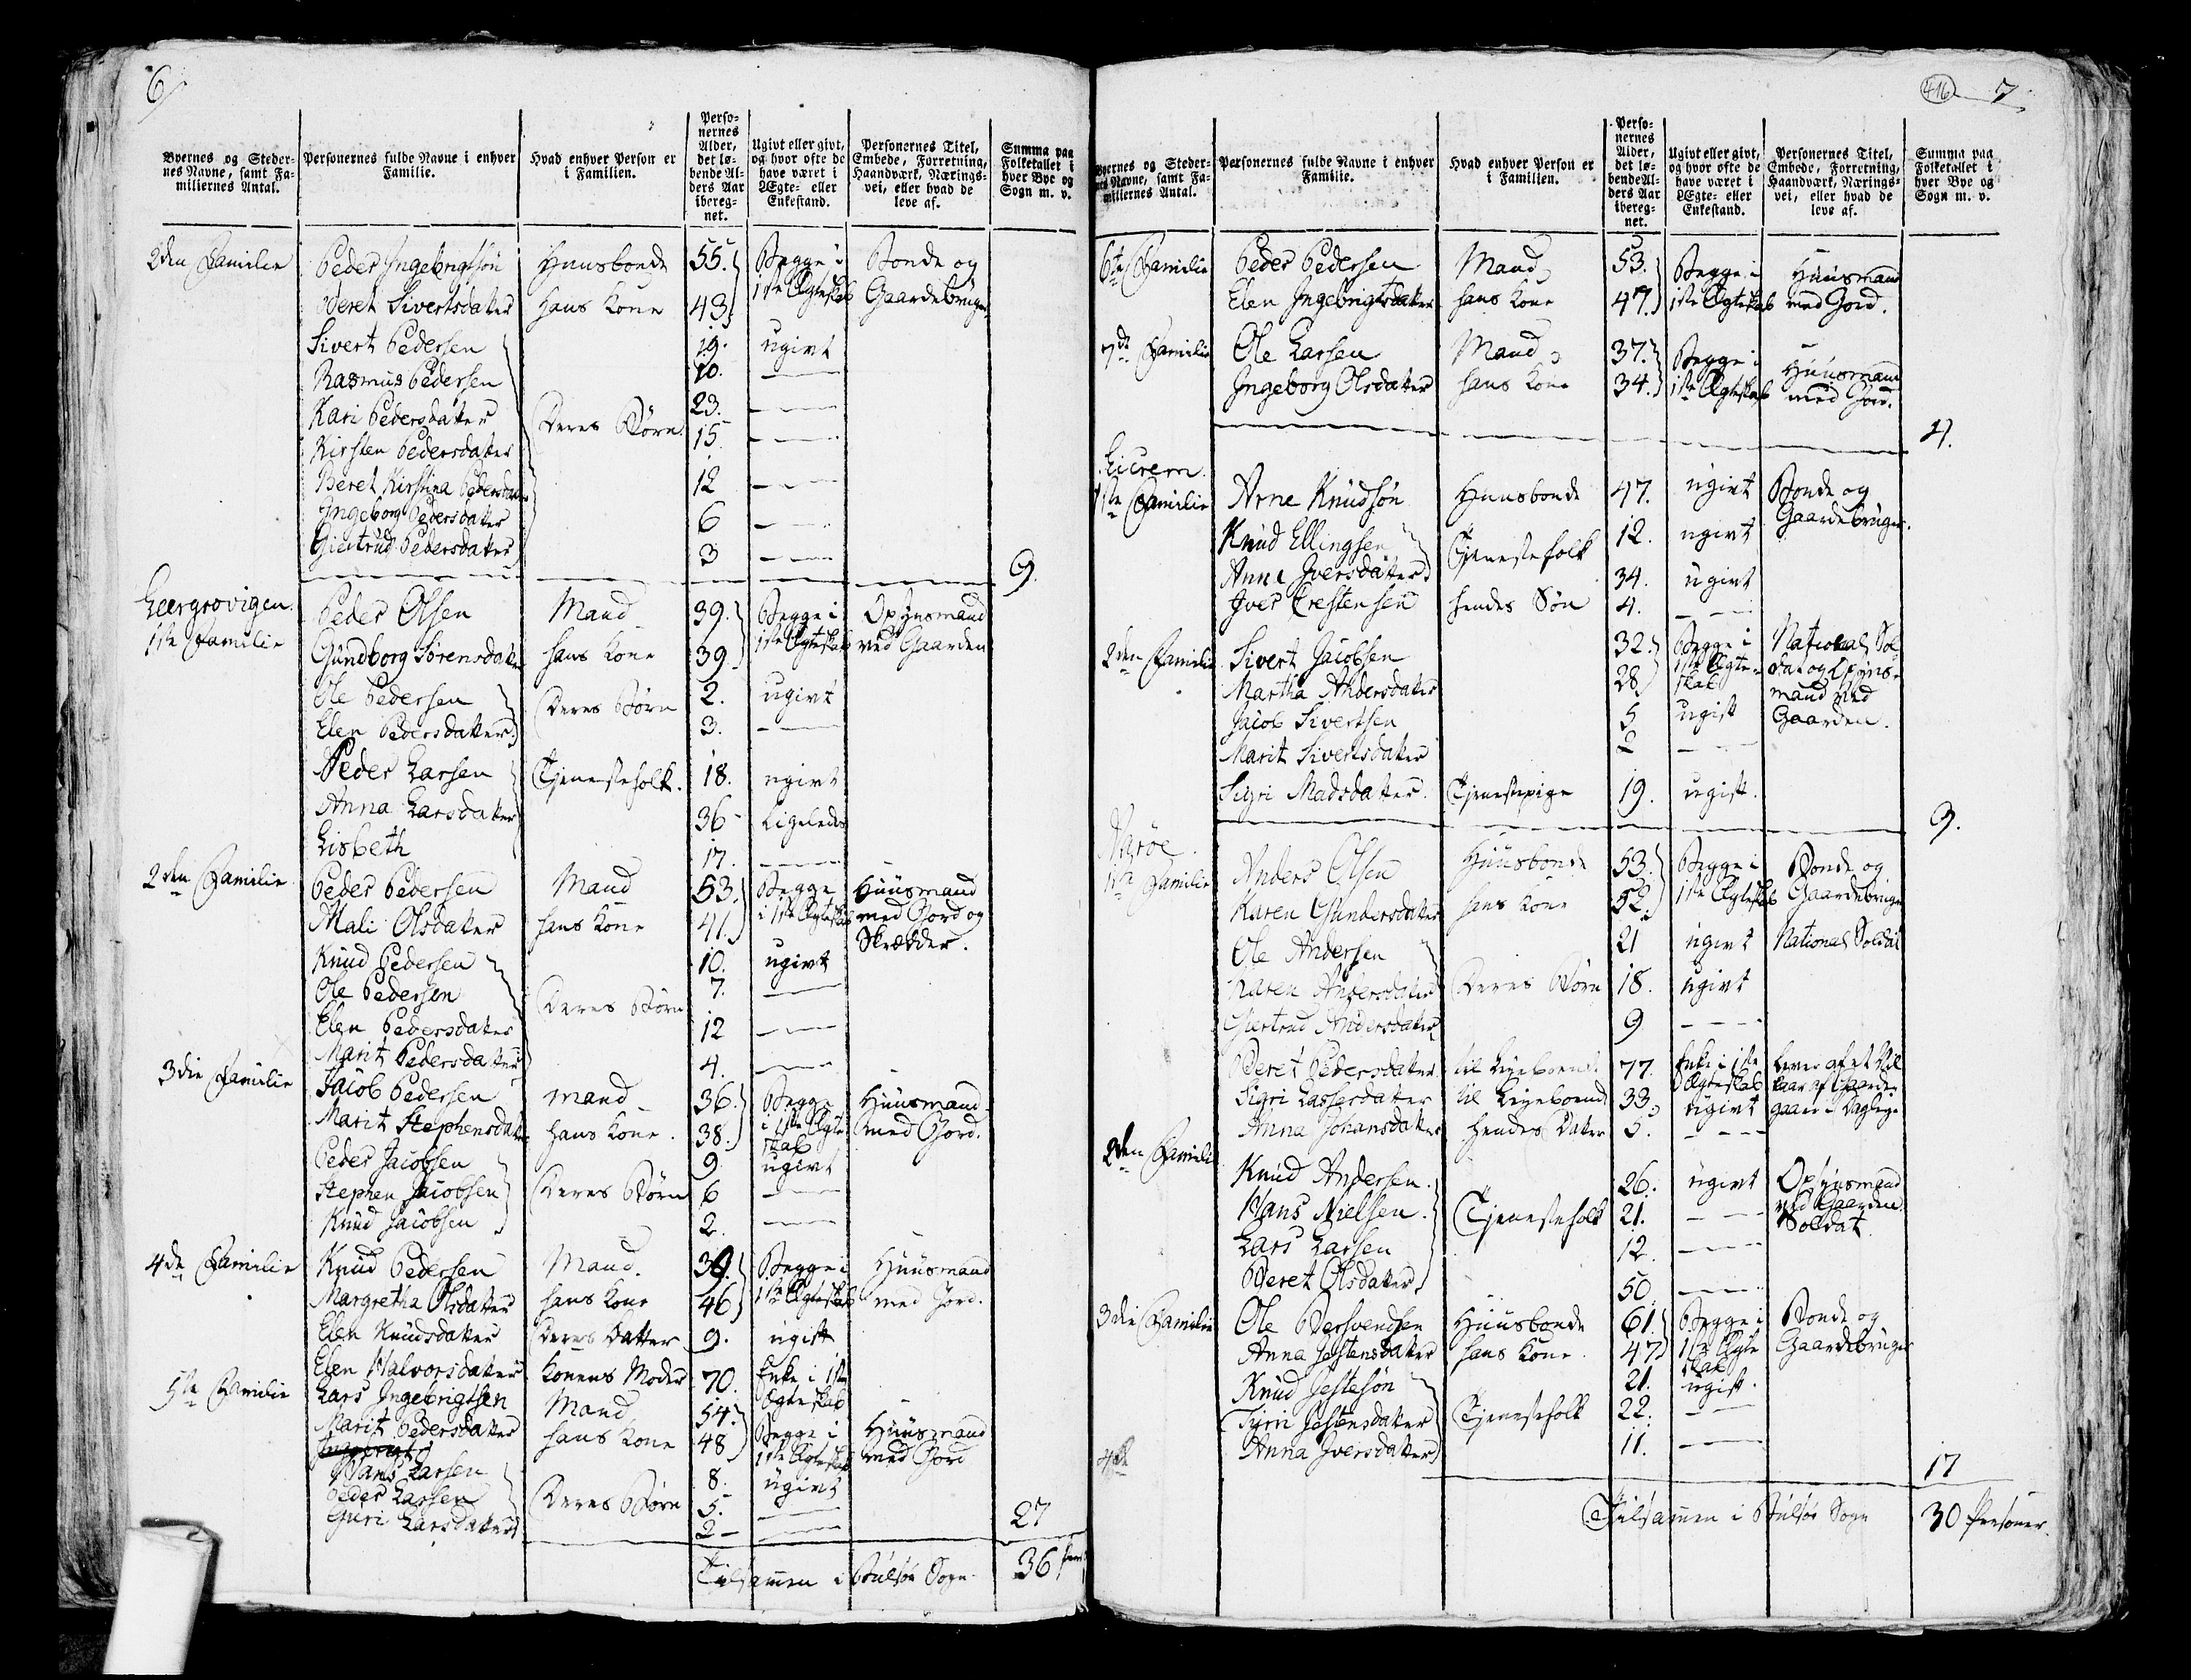 6
Byernes og Steder-
nes Navne, samt Fa-
miliernes Antal.
Personernes fulde Navne i enhver
Familie.
Hvad enhver Person er
i Familien.
Perso-
nernes
Alder,
det lø-
bende Al-
ders Aar
ibereg-
net.
Ugivt eller givt,
og hvor ofte de
have været i
Ægte- eller
Enkestand.
Personernes Titel,
Embede, Forretning,
Haandværk, Nærings-
vei, eller hvad de
leve af.
Summa paa
Folketallet i
hver Bye og
Sogn m. v.
2den Familie Peder Ingebrigtsøn Huusbonde 55. Begge i Bonde og
Beret Sivertsdatter hans Kone 43. 1ste Ægteskab Gaardebruger
Sivert Pedersen 19. ugivt
Rasmus Pedersen 10. —
Kari Pedersdatter 23. —
Deres Børn
Kirsten Pedersdatter 15 —
Beret Kirstina Pedersdatter 12 —
Ingeborg Pedersdatter 6 —
Giertrud Pedersdatter 3 —
9.
Leergrovigen.
1ste Familie Peder Olsen Mand 39. Begge i Opsynsmand
Gundborg Sørensdatter hans Kone 39 1ste Ægteskab ved Gaarden
Ole Pedersen Deres Børn 2. ugivt
Elen Pedersdatter 3. —
Peder Larsen Tjenestefolk. 18. ugivt
Anna Larsdatter 36 Ligeledes
Lisbeth 17. —
2den Familie Peder Pedersen Mand 53. Begge Huusmand
Mali Olsdatter hans Kone 41. i 1ste Ægteskab med Jord og
Skrædder.
Knud Pedersen 10. ugivt
Ole Pedersen Deres Børn 7. —
Elen Pedersdatter 12 —
Marit Pedersdatter 4. —
3die Familie Jacob Pedersen mand 36. Begge Huusmand
Marit Stephensdatter hans Kone. 38. i 1ste Ægte med Jord.
skab
Peder Jacobsen 9 ugivt
Stephen Jacobsen Deres Børn 6 —
Knud Jacobsen 2. —
4de Familie Knud Pedersen Mand. 39. Begge i Huusmand
Margretha Olsdatter hans Kone 46 1ste Ægteskab med Jord.
Elen Knudsdatter Deres Datter 9. ugift
Elen Halvorsdatter Konens Moder 70. Enke i 1ste
Ægteskab
5te Familie Lars Ingebrigtsen Mand 54. Begge i Huusmand
Marit Pedersdatter hans Kone 48 1ste Ægteskab med Jord
Hans Larsen 8. ugivt
Peder Larsen Deres Børn 5. —
Guri Larsdatter 2 —
27
Tilsammen i Bulsøe Sogn 36
416 7
Byernes og Steder-
nes Navne, samt Fa-
miliernes Antal.
Personernes fulde Navne i enhver
Familie.
Hvad enhver Person er
i Familien.
Perso-
nernes
Alder,
det lø-
bende Al-
ders Aar
ibereg-
net.
Ugivt eller givt,
og hvor ofte de
have været i
Ægte- eller
Enkestand.
Personernes Titel,
Embede, Forretning,
Haandværk, Nærings-
vei, eller hvad de
leve af.
Summa paa
Folketallet i
hver Bye og
Sogn m. v.
6te Familie Peder Pedersen Mand 53. Begge i Huusmand
Elen Ingebrigtsdatter hans Kone 47. 1ste Ægteskab med Jord.
7de Familie Ole Larsen Mand 37. Begge i Huusmand
Ingeborg Olsdatter hans Kone 34. 1ste Ægteskab med Jord.
4.
1ste Familie Arne Knudsøn Huusbonde 47. ugivt Bonde og
Gaardebruger.
Knud Ellingsen Tjenestefolk 12. ugivt
Anne Iversdatter 34. ugivt
Iver Crestensen hendes Søn 4. —
2den Familie Sivert Jacobsen 32. Begge i National Sol-
Martha Andersdatter 28 1ste Ægte- dat og Opsyns-
skab mand ved
Jacob Sivertsen 5 ugift Gaarden.
Marit Sivertsdatter 2 —
Sigri Madsdatter Tjenestepige 19. ugift.
9.
1ste Familie Anders Olsen Huusbonde 53. Begge i Bonde og
Karen Gundersdatter hans Kone 52. 1ste Ægteskab Gaardebruger
Ole Andersen 21 ugivt National Soldat
Karen Andersdatter Deres Børn 18. ugivt
Giertrud Andersdatter 9 —
Beret Pedersdatter til Leyeboende 77. Enke i 1ste lever af et Vil
Ægteskab kaar af Gaarden
Sigri Lassesdatter til Leyeboende 33. ugivt gaar i Dagleye
Anna Johansdatter hendes Datter 5. —
2den Familie Knud Andersen 26. ugivt Opsynsmand
ved Gaarden
Hans Nielsen Tjenestefolk 21. — Soldat
Lars Larsen 12. —
Beret Olsdatter 50 —
3die Familie Ole Bersvendsen Huusbonde 61 Begge i Bonde og
Anna Jestensdatter hans Kone 47 1ste Ægte Gaardebruger
skab
Knud Jestesøn 21. ugift.
Sigri Jestensdatter Tjenestefolk 22. —
Anna Iversdatter 11. —
4de
17
Tilsammen i Bulsøe Sogn 30 Personer.